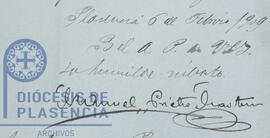 Plasencia 6 de Febrero 1909
B. l. A. P. de V. S. I.
su humilde súbdito
Manuel Prieto Martin
DIÓCESIS DE
PLASENCIA
ARCHIVOS